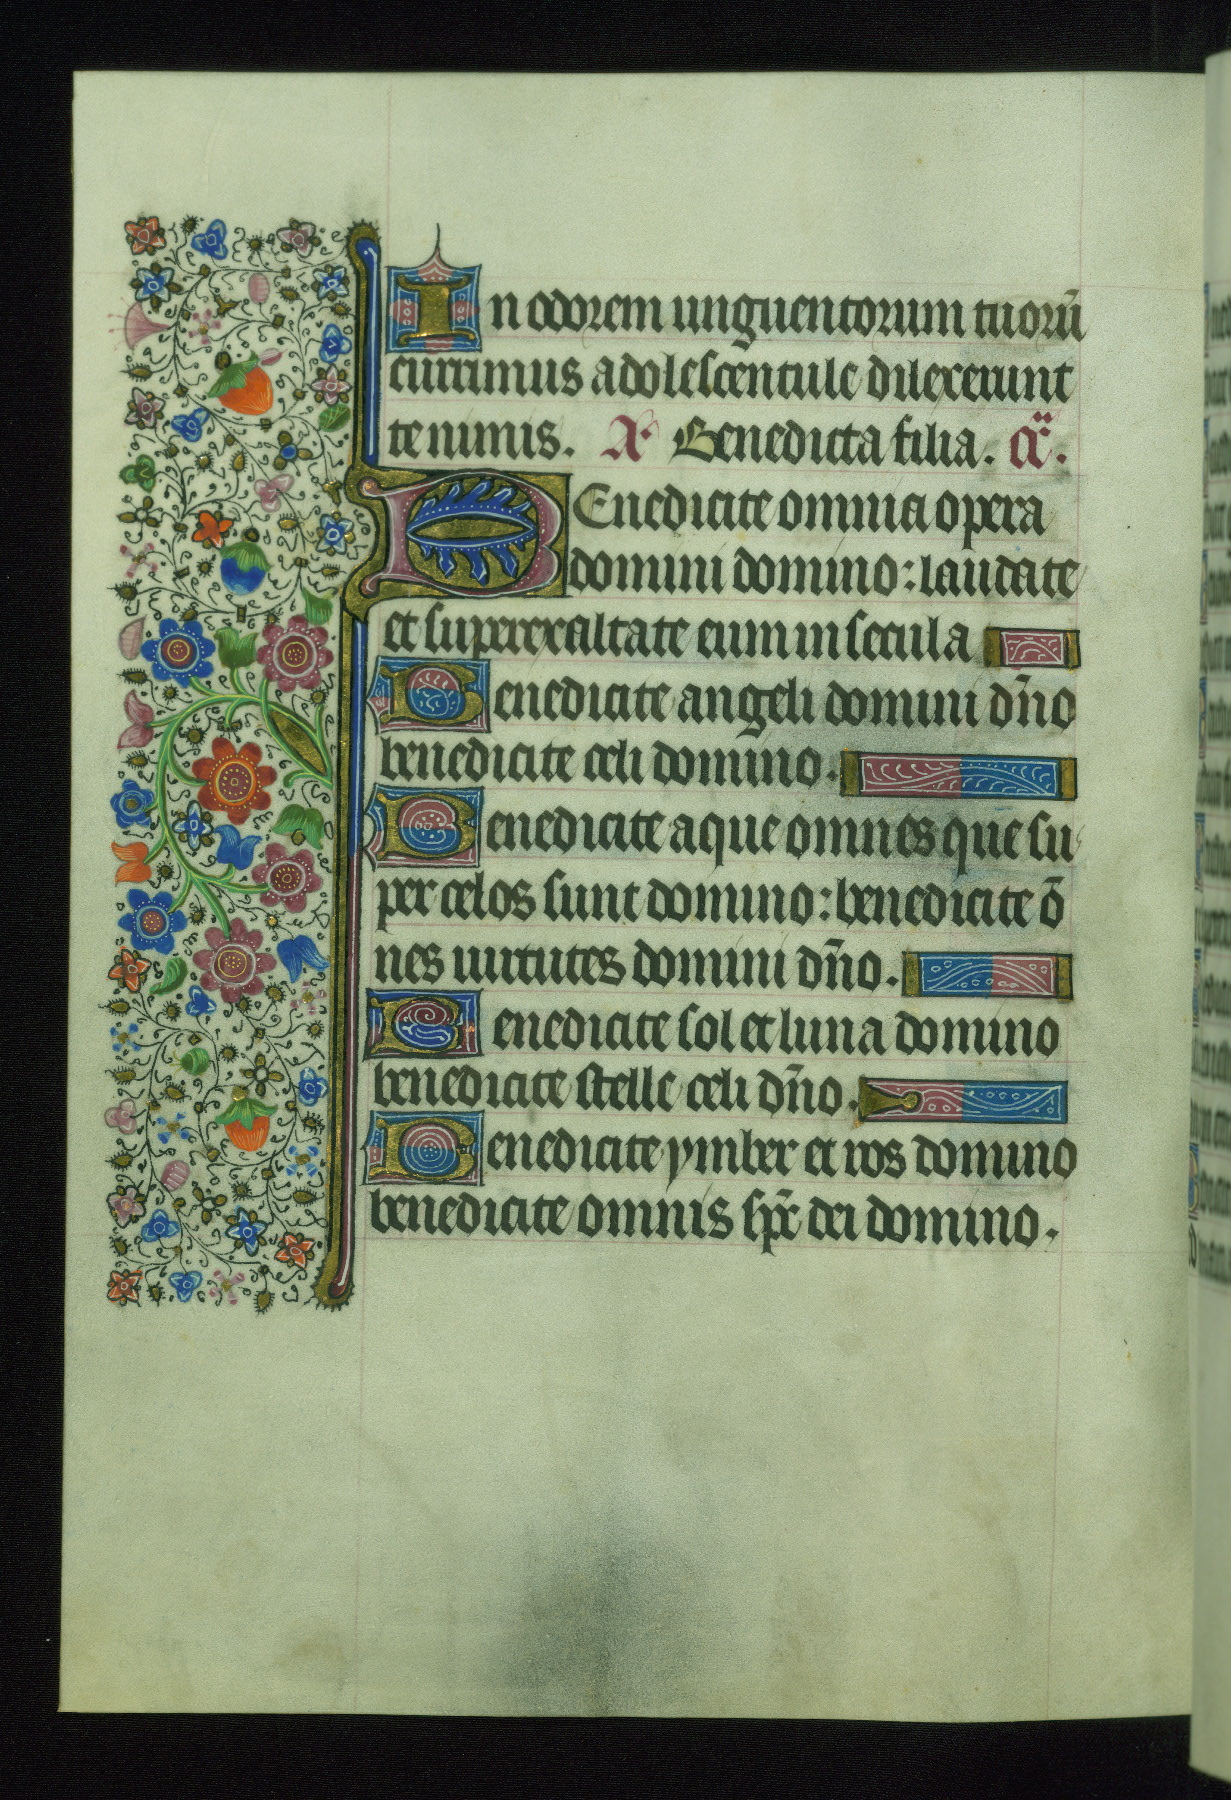 In odorem unguentorum tuorū
currimus adolescentule dilexerunt
te nimis. A Benedicta filia. cā.
BEnedicite omnia opera
domini domino: laudate
et superexaltate eum in secula
Benedicite angeli domini dn̄o
benedicite celi domino.
Benedicite aque omnes que su
per celos sunt domino: benedicite ō
nes uirtutes domini dn̄o.
Benedicite sol et luna domino
benedicite stelle celi dn̄o.
Benedicite ymber et ros domino
benedicite omnis sp̄c dei domino.